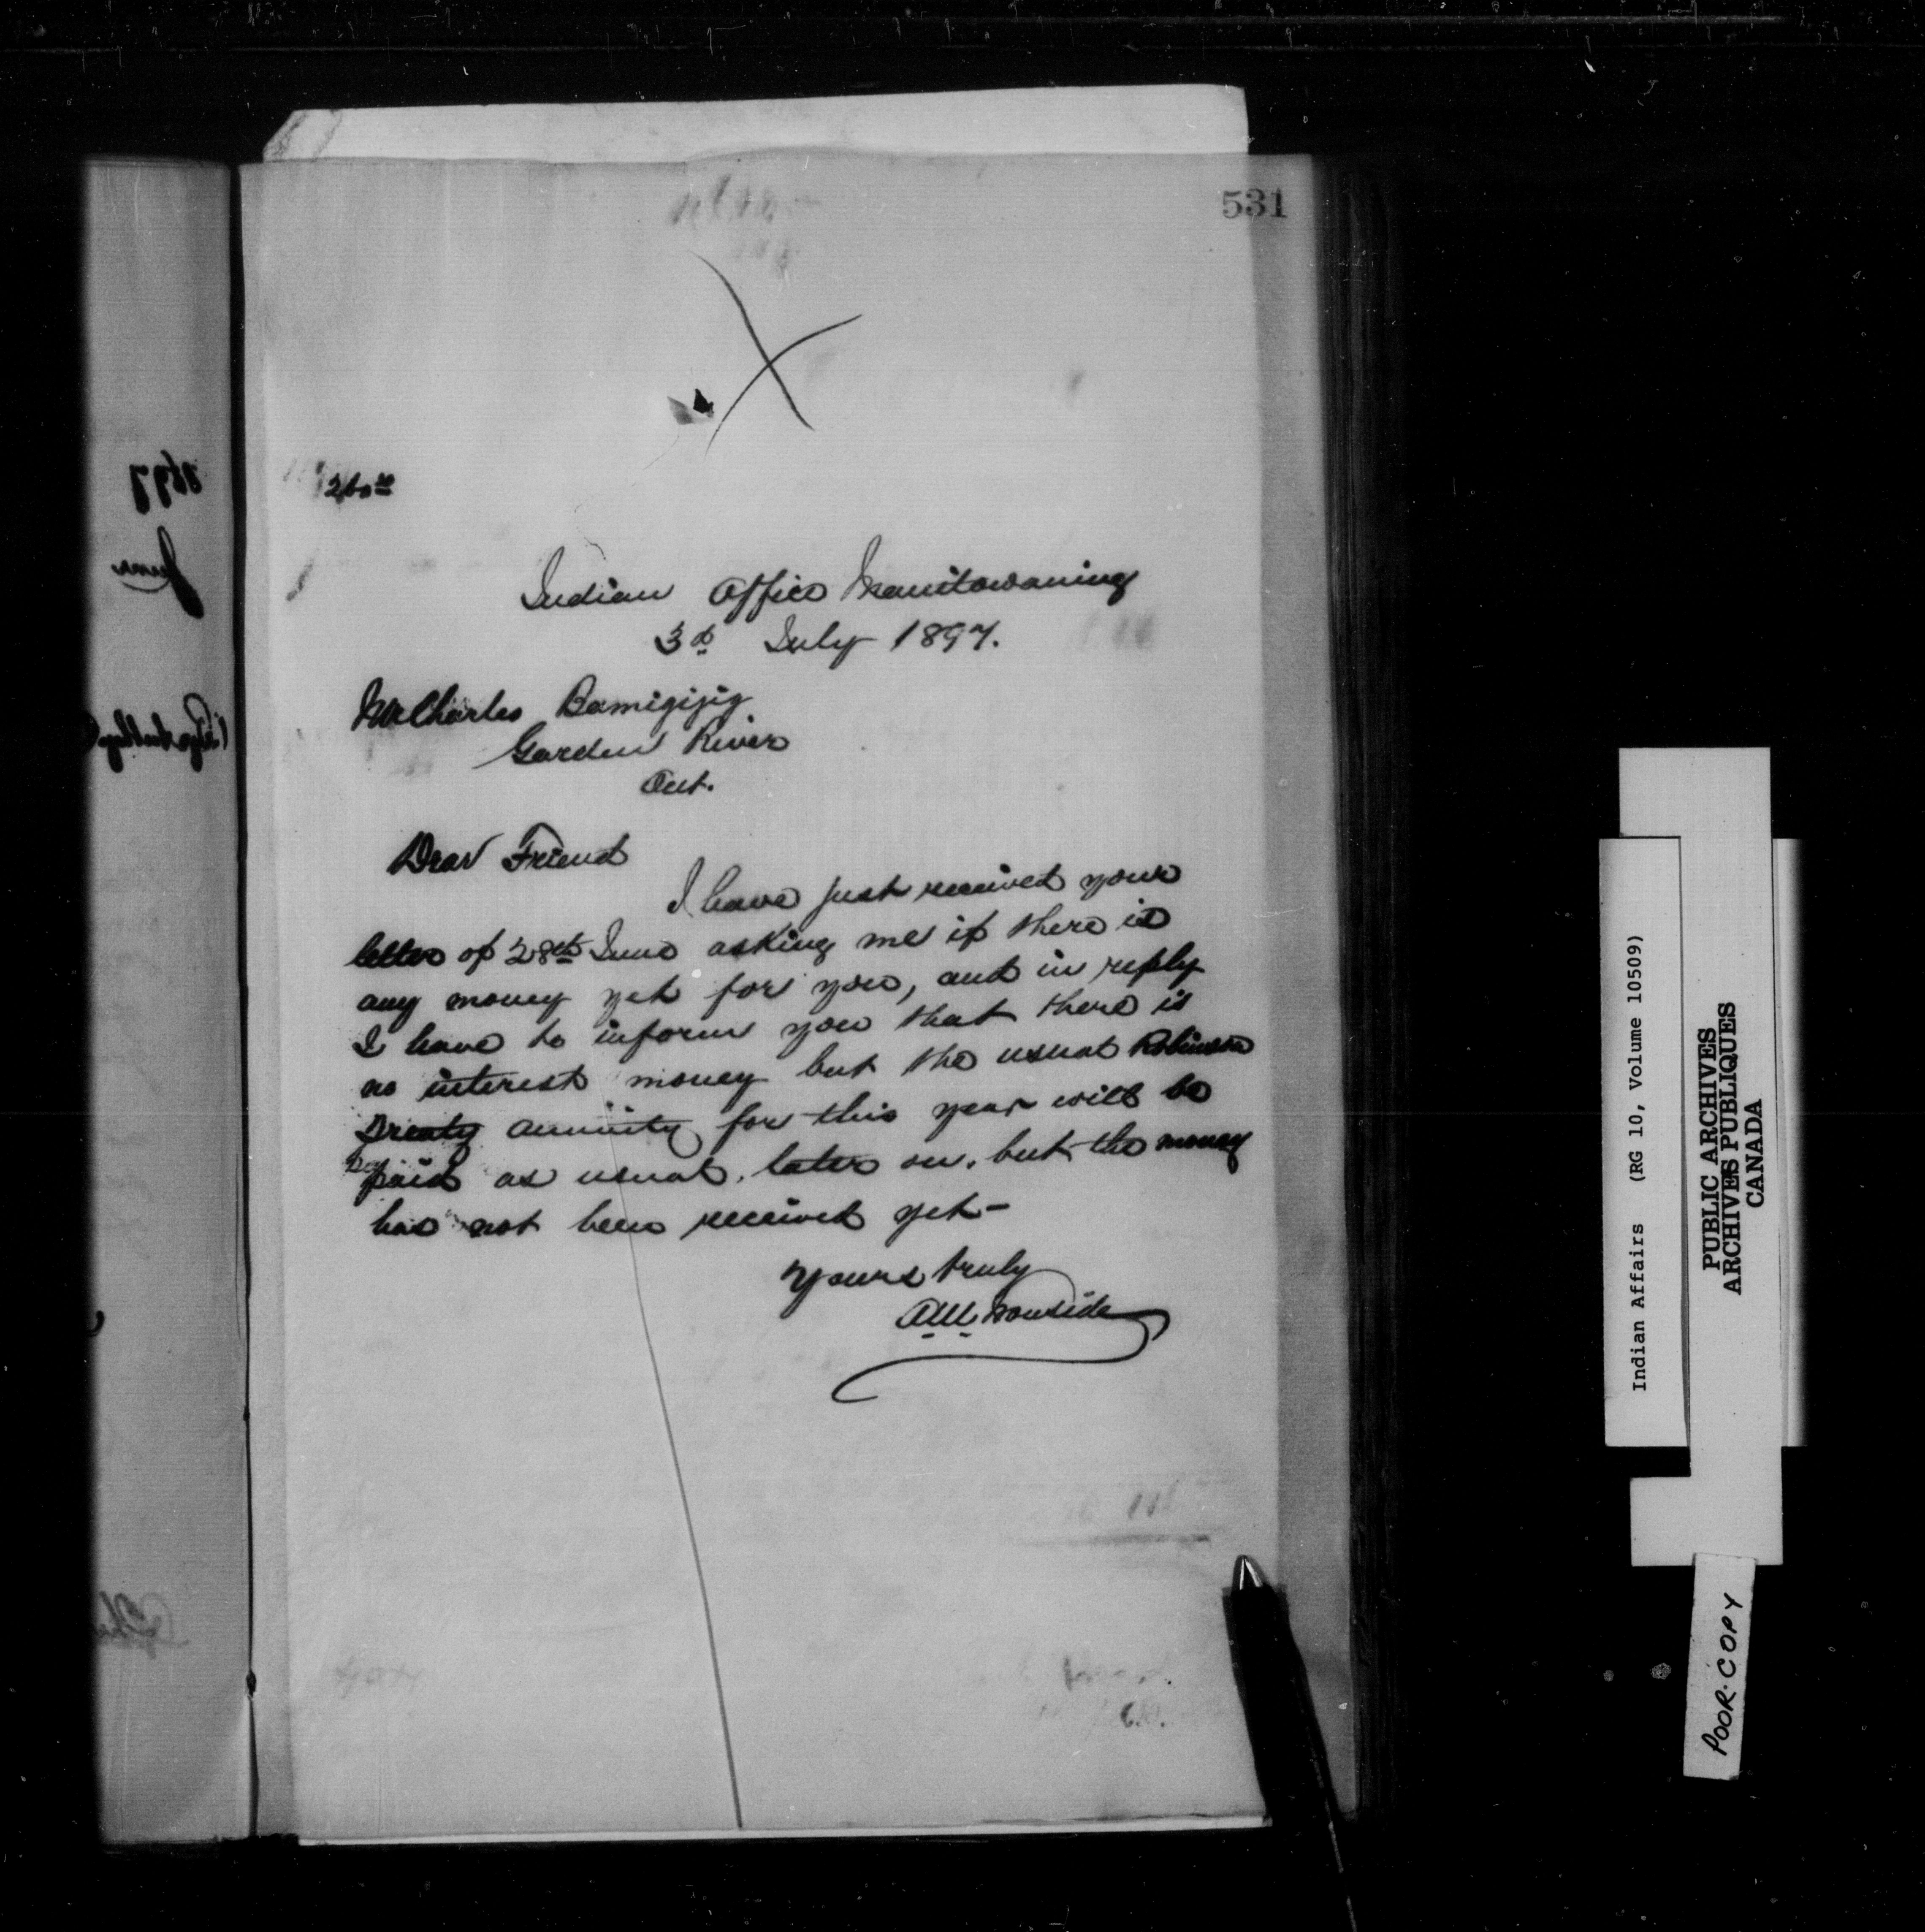 531
Indian Office Manitowaning
3d July 1897.
Mr Charles Bamigijig
Garden River
Ont.
Dear Friend
I have just received your
letter of 28th June asking me if there is
any money yet for you, and in reply
I have to inform you that there is
no interest money but the usual Robinson
Treaty annuity for this year will be
paid as usual, later on, but the money
has not been received yet-
Yours truly
Indian Affairs (RG 10, Volume 10509)
PUBLIC ARCHIVES
ARCHIVES PUBLIQUES
CANADA
POOR COPY
1897
June